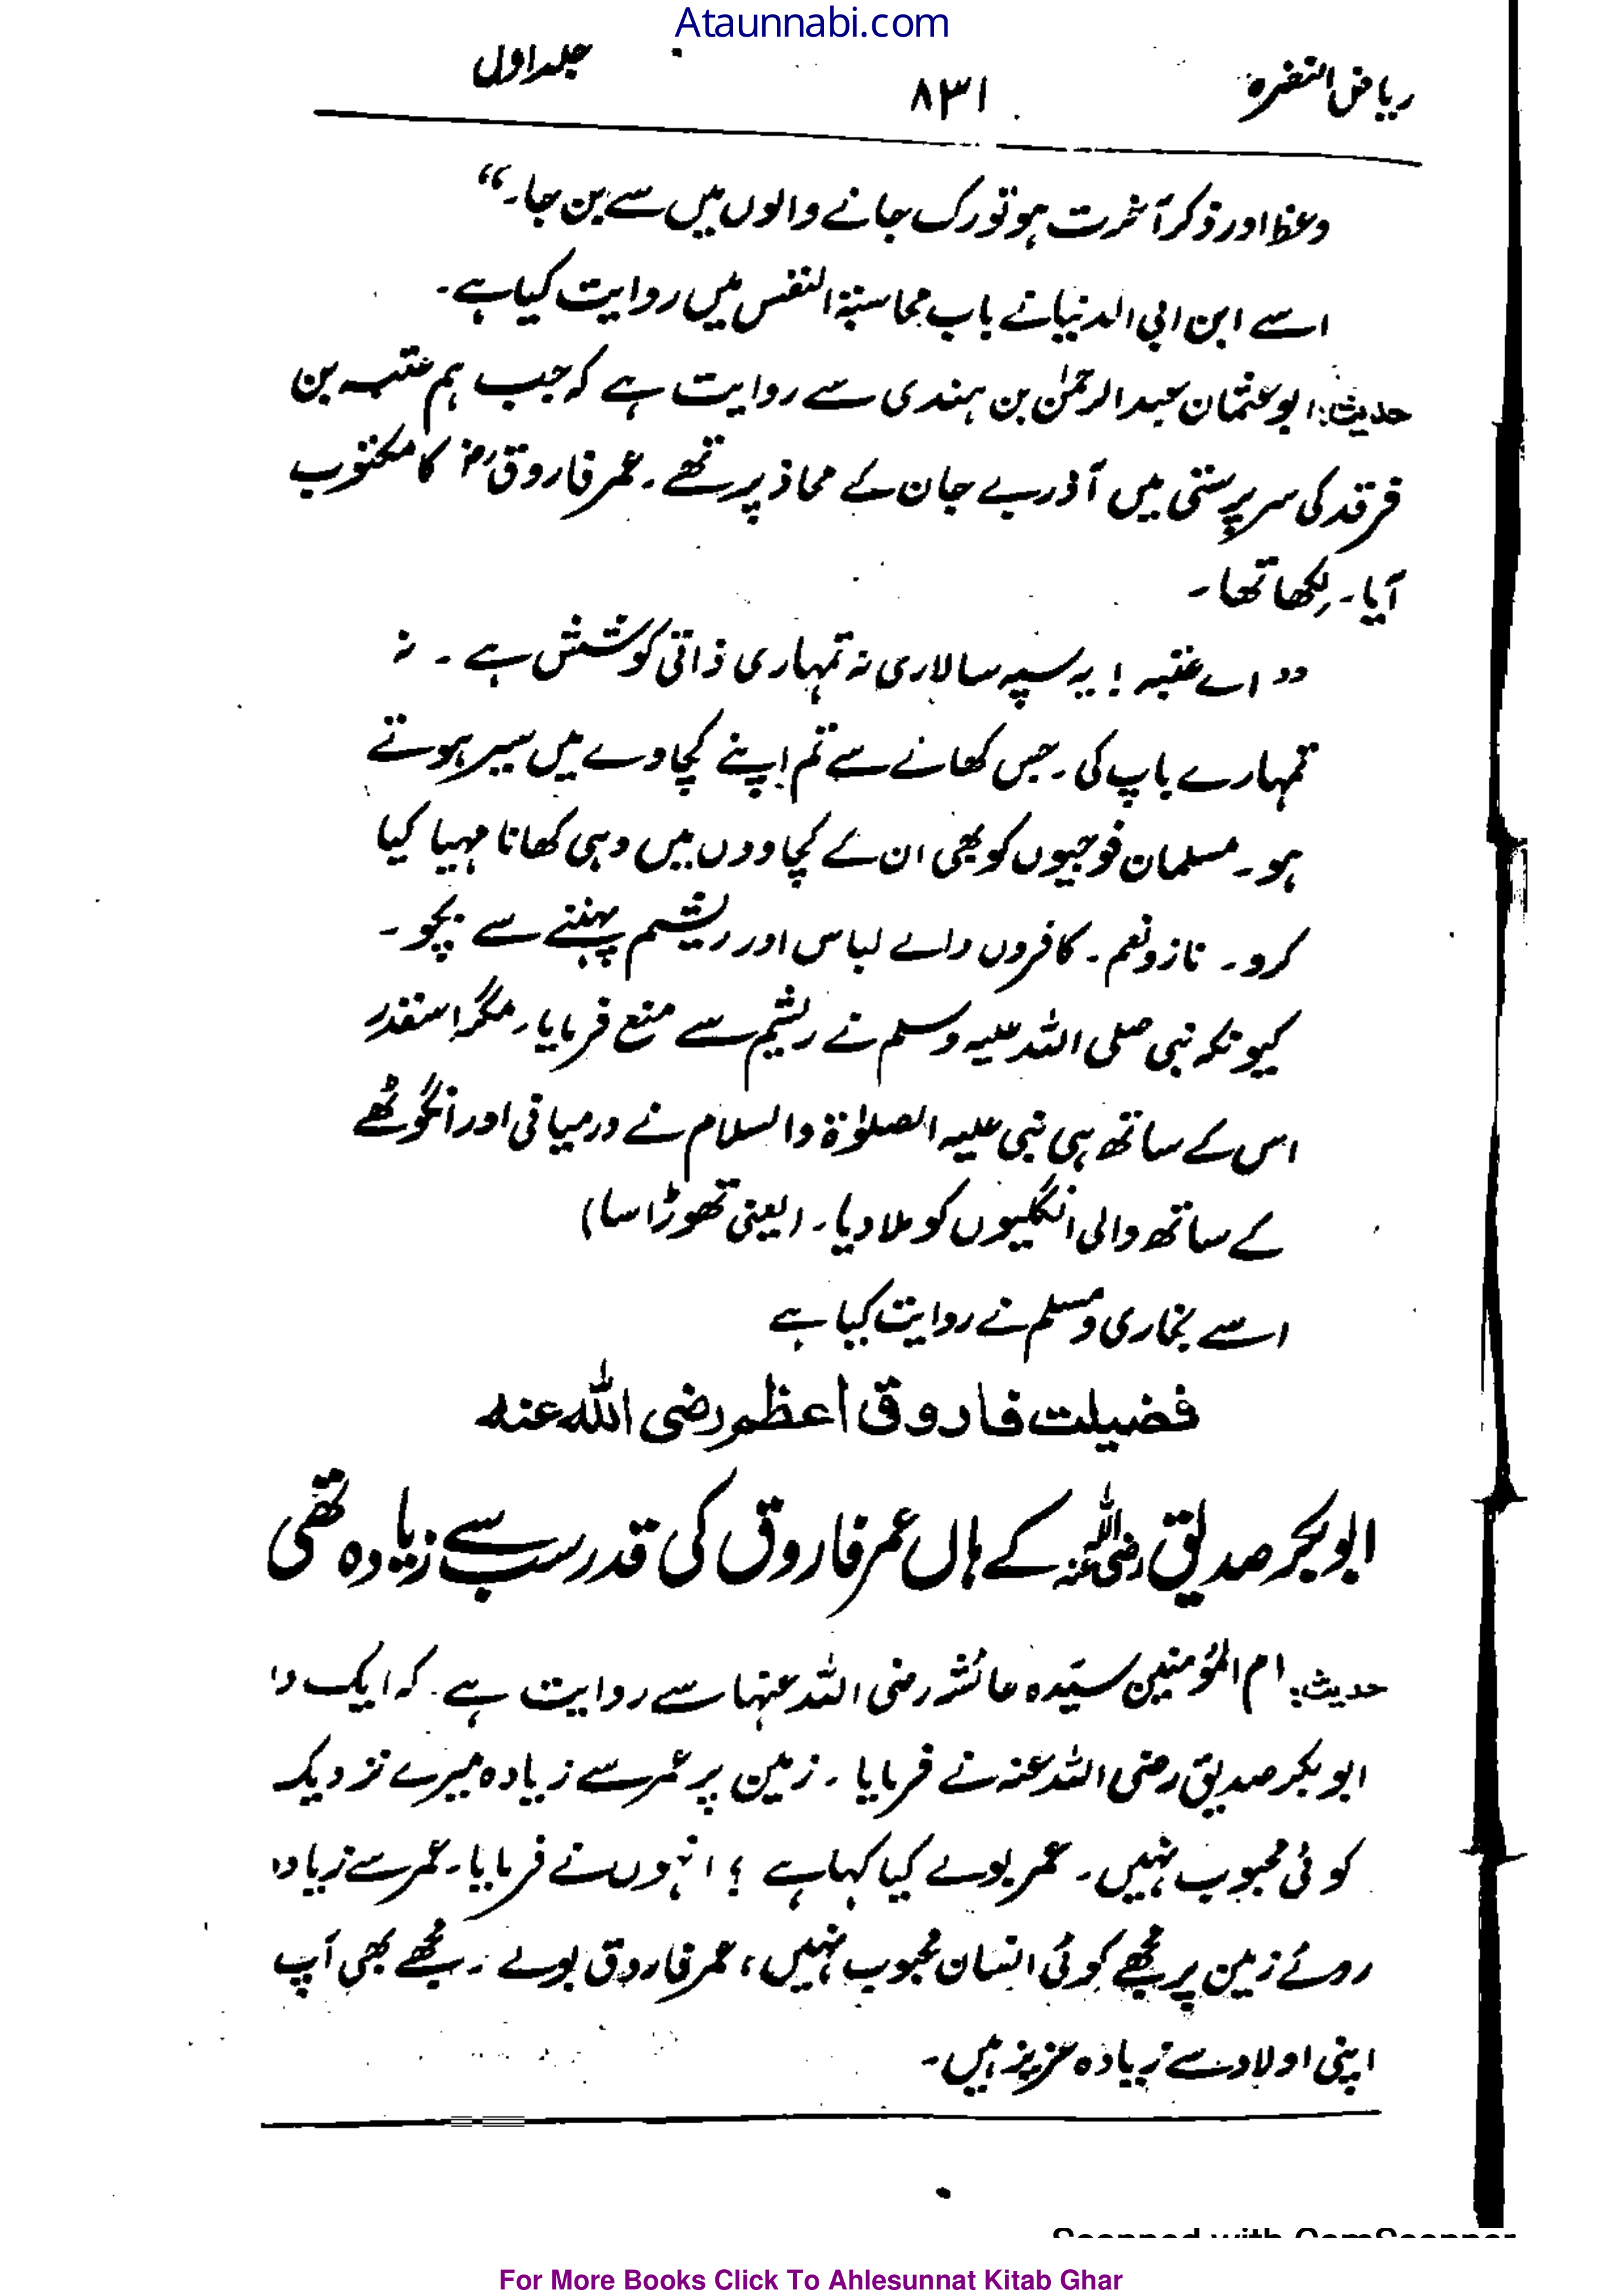 Ataunnabi.com
ریاض النضرہ ۸۳۱ جلد اول
وعظ اور ذکر آخرت ہو تو رک جانے والوں میں سے بن جا۔“
اسے ابن ابی الدنیا نے باب محاسبۃ النفس میں روایت کیا ہے۔
حدیث: ابو عثمان عبدالرحمٰن بن ہندی سے روایت ہے کہ جب ہم عتبہ بن
فرقد کی سرپرستی میں آذربے جان کے محاذ پر تھے۔ عمر فاروقؓ کا مکتوب
آیا۔ لکھا تھا۔
”اے عتبہ! یہ سپہ سالاری نہ تمہاری ذاتی کوشش ہے۔ نہ
تمہارے باپ کی۔ جس کھانے سے تم اپنے کچاوے میں سیر ہوتے
ہو۔ مسلمان فوجیوں کو بھی ان کے کچاووں میں وہی کھانا مہیا کیا
کرو۔ ناز و نعم۔ کافروں والے لباس اور ریشم پہننے سے بچو۔
کیونکہ نبی صلی اللہ علیہ وسلم نے ریشم سے منع فرمایا۔ مگر اسقدر
اس کے ساتھ ہی نبی علیہ الصلوٰۃ والسلام نے درمیانی اور انگوٹھے
کے ساتھ والی انگلیوں کو ملا دیا۔ (یعنی تھوڑا سا)
اسے بخاری و مسلم نے روایت کیا ہے
فضیلت فاروق اعظم رضی اللہ عنہ
ابوبکر صدیق رضی اللہ عنہ کے ہاں عمر فاروق کی قدر سب سے زیادہ تھی
حدیث: ام المؤمنین سیّدہ عائشہ رضی اللہ عنہا سے روایت ہے۔ کہ ایک دا
ابوبکر صدیق رضی اللہ عنہ نے فرمایا۔ زمین پر عمر سے زیادہ میرے نزدیک
کوئی محبوب نہیں۔ عمر بولے کیا کہا ہے؟ انہوں نے فرمایا۔ عمر سے زیادہ
روئے زمین پر مجھے کوئی انسان محبوب نہیں، عمر فاروق بولے۔ مجھے بھی آپ
اپنی اولاد سے زیادہ عزیز ہیں۔
Scanned with CamScanner
For More Books Click To Ahlesunnat Kitab Ghar